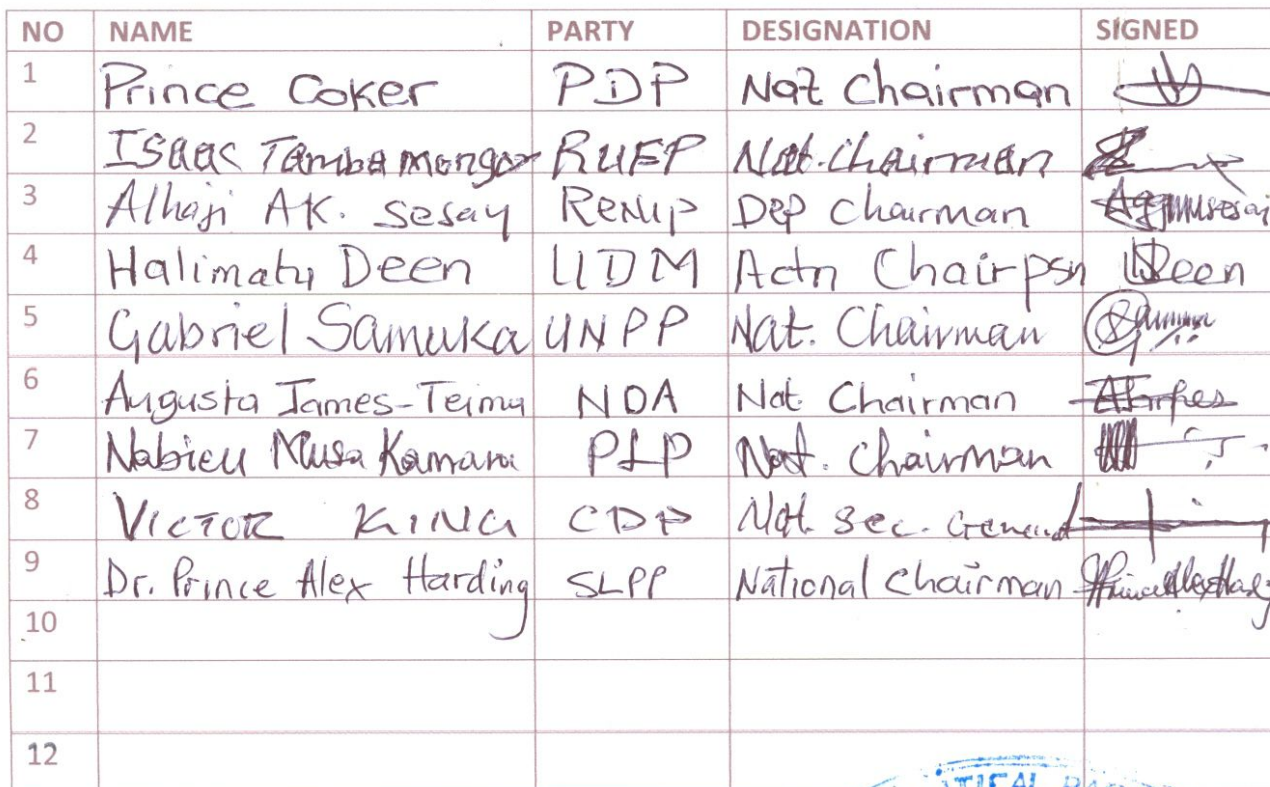 NO NAME PARTY DESIGNATION SIGNED
1 Prince Coker PDP Nat Chairman
2 Isaac Tamba RUFP Nat. Chairman
3 Alhaji AK. Sesay RENIP Dep Chairman
4 Halimatu Deen UDM Actn Chairpsn Deen
5 Gabriel Samuka UNPP Nat. Chairman
6 Augusta James-Teima NDA Nat. Chairman
7 Nabieu Musa Kamara PLP Nat. Chairman
8 VICTOR KING CDP Nat. Sec. General
9 Dr. Prince Alex Harding SLPP National Chairman
10
11
12